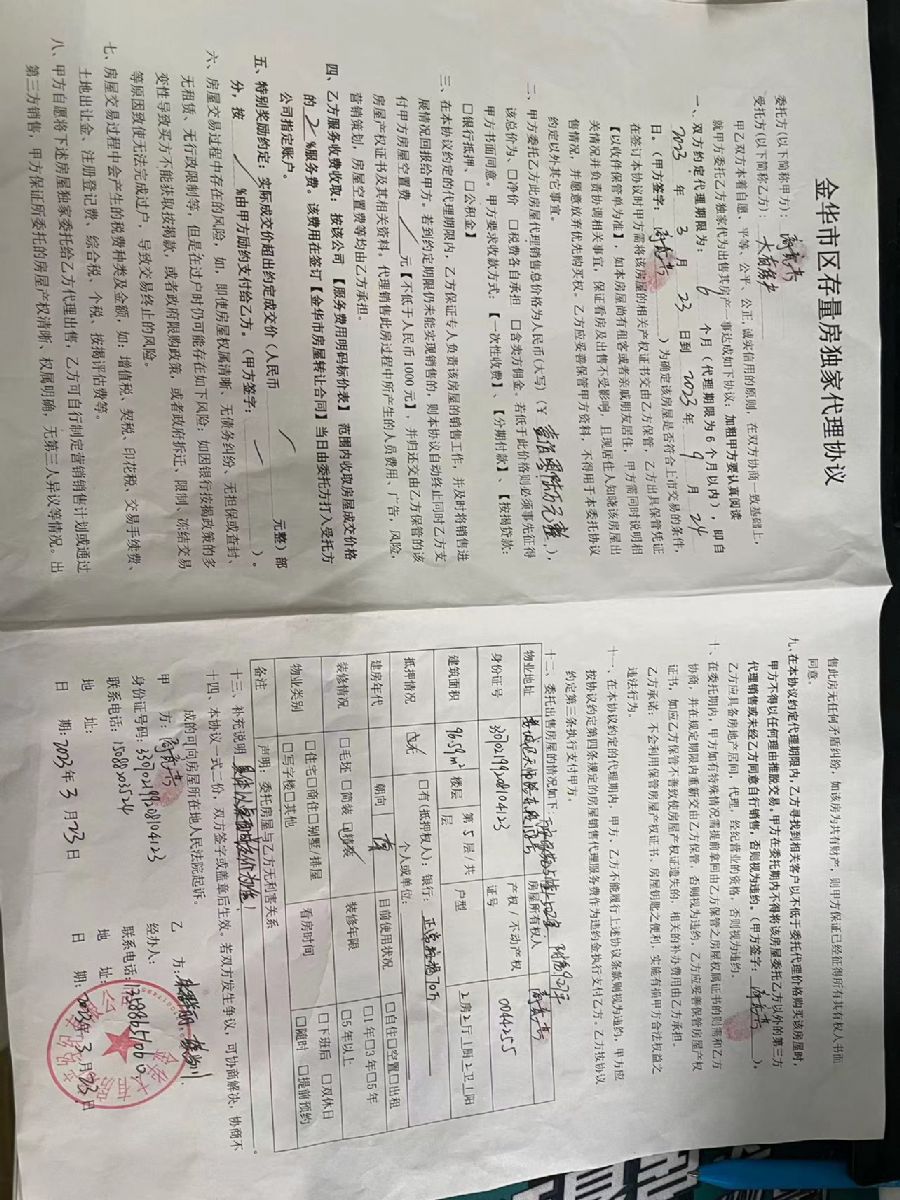 金华市区存量房独家代理协议
委托方(以下简称甲方):
受托方(以下简称乙方):太前房产
甲乙双方本着自愿、平等、公平、公正,诚实信用的原则,在双方协商一致基础上,
就甲方委托乙方独家代为出售其房产一事达成如下协议:加粗甲方要认真阅读
一、双方约定代理期限为: 6 个月(代理期限为6个月以内),即自
2023 年 3 月 23 日到 2023年 9 月 24
日。(甲方签字: )为确定该房屋是否符合上市交易的条件,
在签订本协议时甲方需将该房屋的相关产权证书交由乙方保管,乙方出具保管凭证
【以收件保管单为准】如本房屋尚有租客或者亲戚朋友居住,甲方需同时说明相
关情况并负责协调相关事宜,保证看房及出售不受影响,且现居住人知晓该房屋出
售情况,并愿意放弃优先购买权。乙方应妥善保管甲方资料,不得用于本委托协议
约定以外其它事宜。
二、甲方委托乙方此房屋代理销售总价格为人民币(大写)(¥ 万元整 ),
该总价为、□净价 □税费各自承担 □含卖方佣金。若低于此价格则必须事先征得
甲方书面同意。甲方要求收款方式:【一次性收费】、【分期付款】、【按揭贷款:
□银行抵押、□公积金】
三、在本协议约定的代理期限内,乙方保证专人负责该房屋的销售工作,并及时将销售进
展情况回报给甲方;若到约定期限仍未能实现销售的,则本协议自动终止同时乙方支
付甲方房屋空置费 / 元【不低于人民币1000元】,并归还交由乙方保管的该
房屋产权证书及其相关资料。代理销售此房过程中所产生的人员费用,广告,风险,
营销策划,房屋空置费等均由乙方承担。
四、乙方服务收费收取:按该公司【服务费用明码标价表】范围内收取房屋成交价格
的 2 %服务费。该费用在签订【金华市房屋转让合同】当日由委托方打入受托方
公司指定账户。
五、特别奖励约定:实际成交价超出约定成交价(人民币 / 元整)部
分,按 / %由甲方励约支付给乙方。(甲方签字: / )。
六、房屋交易过程中存在的风险:如,即使房屋权属清晰、无债务纠纷、无担保或查封、
无租赁、无行政限制等,但是在过户时仍可能存在如下风险:如因银行按揭政策的多
变性导致买方不能获取按揭款,或者政府限购政策,或者政府拆迁、限制、冻结交易
等原因致使无法完成过户,导致交易终止的风险。
七、房屋交易过程中会产生的税费种类及金额,如:增值税、契税、印花税、交易手续费、
土地出让金、注册登记费、综合税、个税、按揭评估费等。
八、甲方自愿将下述房屋独家委托给乙方代理出售,乙方可自行制定营销销售计划或通过
第三方销售,甲方保证所委托的房屋产权清晰、权属明确,无第三人异议等情况。出
售此房无任何矛盾纠纷,如该房为共有财产,则甲方保证已经征得所有共有权人书面
同意。
九、在本协议约定代理期限内,乙方寻找到相关客户以不低于委托代理价格购买该房屋时,
甲方不得以任何理由推脱交易,甲方在委托期内不得将该房屋委托乙方以外的第三方
代理销售或未经乙方同意自行销售,否则视为违约。(甲方签字: )。
乙方应具备房地产居间,代理,经纪营业的资格,否则视为违约。
十、在委托期内,甲方如有特殊情况需提前拿回由乙方保管之房屋权属证书的则需和乙方
协商,并在规定期限内重新交由乙方保管,否则视为违约,乙方应妥善保管房屋产权
证书,如应乙方保管不善致使房屋产权证遗失的,相关的补办费用由乙方承担。
乙方承诺:不会利用保管房屋产权证书、房屋钥匙之便利,实施有损甲方合法权益之
违法行为。
十一、在本协议约定的代理期内,甲方、乙方不能履行上述协议条款则视为违约,甲方应
按协议约定第四条规定的房屋销售代理服务费作为违约金执行支付乙方。乙方按协议
约定第三条执行支付甲方。
十二、委托出售房屋的情况如下:
物业地址 房屋所有权人
身份证号 330702199208104123 产权/不动产权证号 0044255
建筑面积 96.59m² 楼层 第5层/共 层 户型 2房2厅1厨2卫1阳
抵押情况 □无 □有(抵押权人):银行: 个人或单位:
建房年代 朝向 南 目前使用状况 □自住□空置□出租
装修情况 □毛坯 □简装 □精装 装修年限 □1年□3年□5年 □5年以上
物业类别 □住宅□商住□别墅/排屋 □写字楼□其他 看房时间 □下班后 □双休日 □随时 □提前预约
备注 声明:委托房屋与乙方无利害关系
十三、补充说明
十四、本协议一式二份,双方签字或盖章后生效。若双方发生争议,可协商解决,协商不
成的可向房屋所在地人民法院起诉。
甲 方: 乙 方:
身份证号码:330702199208104123 经办人:
联系电话:15088203524 联系电话:
地 址: 地 址:
日 期:2023年3月23日 日 期:2023年3月23日